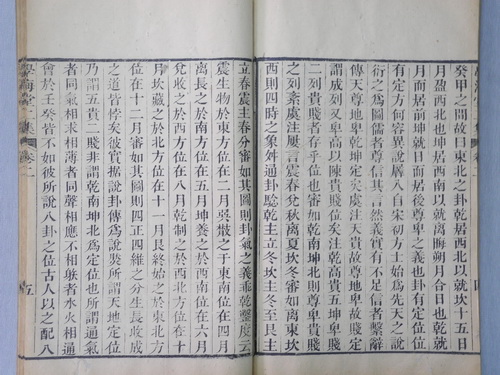 癸甲之間故曰東北之卦乾居西北以就坎十五日
月盈西北也坤居西南以就离晦朔月合日也乾就
月而居前坤就日而居後尊卑之義也卦有定位
有定方何容異說八自宋初方士始爲先天之說
衍之爲圖儒者尊信其言然義實有不足信者繫辭
傳天尊地卑乾坤定矣虞注天貴故尊地卑故賤定
謂成列又卑高以陳貴賤位矣注乾高貴五坤卑賤
二列貴賤者存乎位審如乾南坤北則尊卑貴賤
之列紊虞注屢言震春兌秋离夏坎冬審如离東坎
西則四時之象舛通卦驗乾主立冬坎主冬至艮主
立春震主春分審如其圖則卦氣之義乖乾鑿度云
震生物於東方位在二月巽散之于東南位在四月
离長之於南方位在五月坤養之於西南位在六月
兌收之於西方位在八月乾制之於西北方位在十
月坎藏之於北方位在十一月艮終始之於東北方
位在十二月審如其圖則四正四維之分生長收成
之道皆悖矣彼實據說卦傳爲說所謂天地定位
乃謂五貴二賤非謂乾南坤北爲定位也所謂通氣
者同氣相求相薄者同聲相應不相射者水火相通
會於壬癸皆不如彼所說八卦之位古人以之配八
學海堂二集 卷二 五